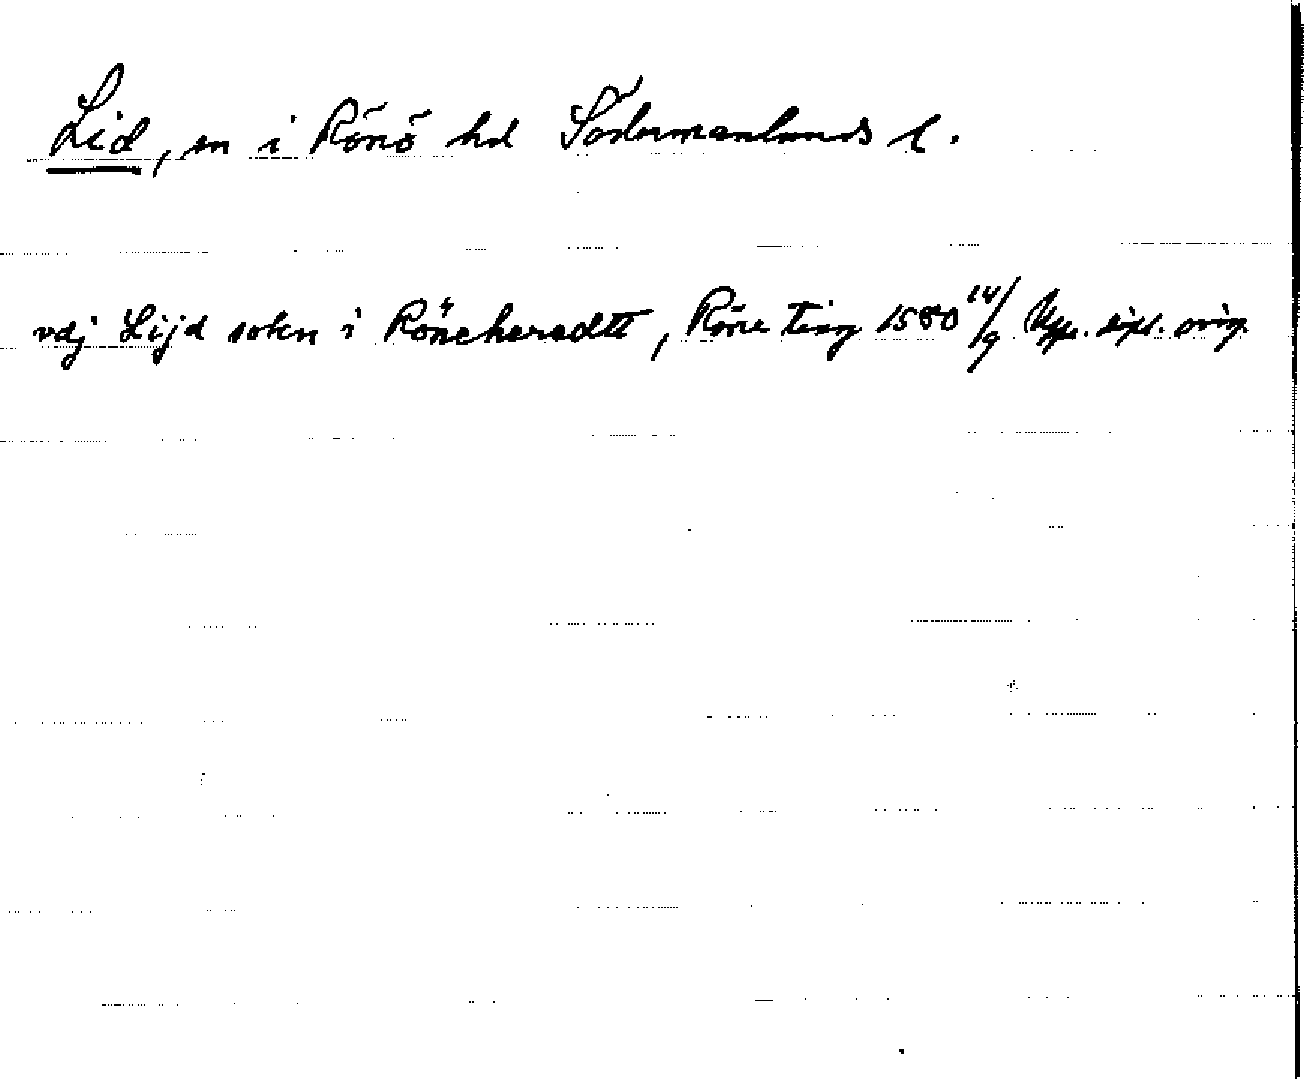 Lid, sn i Rönö hd Södermanlands l.
vdj Lijd sokn i Röneheradtt, Röne ting 1580 14/9 Upps. dipl. orig.